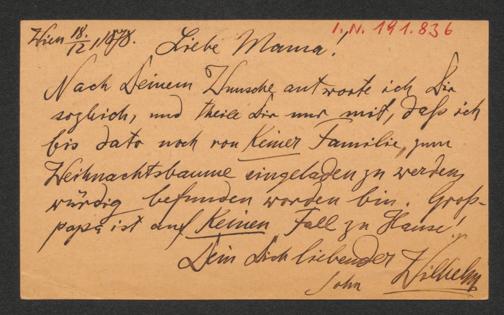 Wien 18./12 1878. Liebe Mama! I.N. 191.836
Nach Deinem Wunsche antworte ich Dir
sogleich, und theile Dir nur mit, daß ich
bis dato noch von Keiner Familie, zum
Weihnachtsbaume eingeladen zu werden,
würdig befunden worden bin. Groß-
papa ist auf Keinen Fall zu Hause!
Dein Dich liebender
Sohn Wilhelm